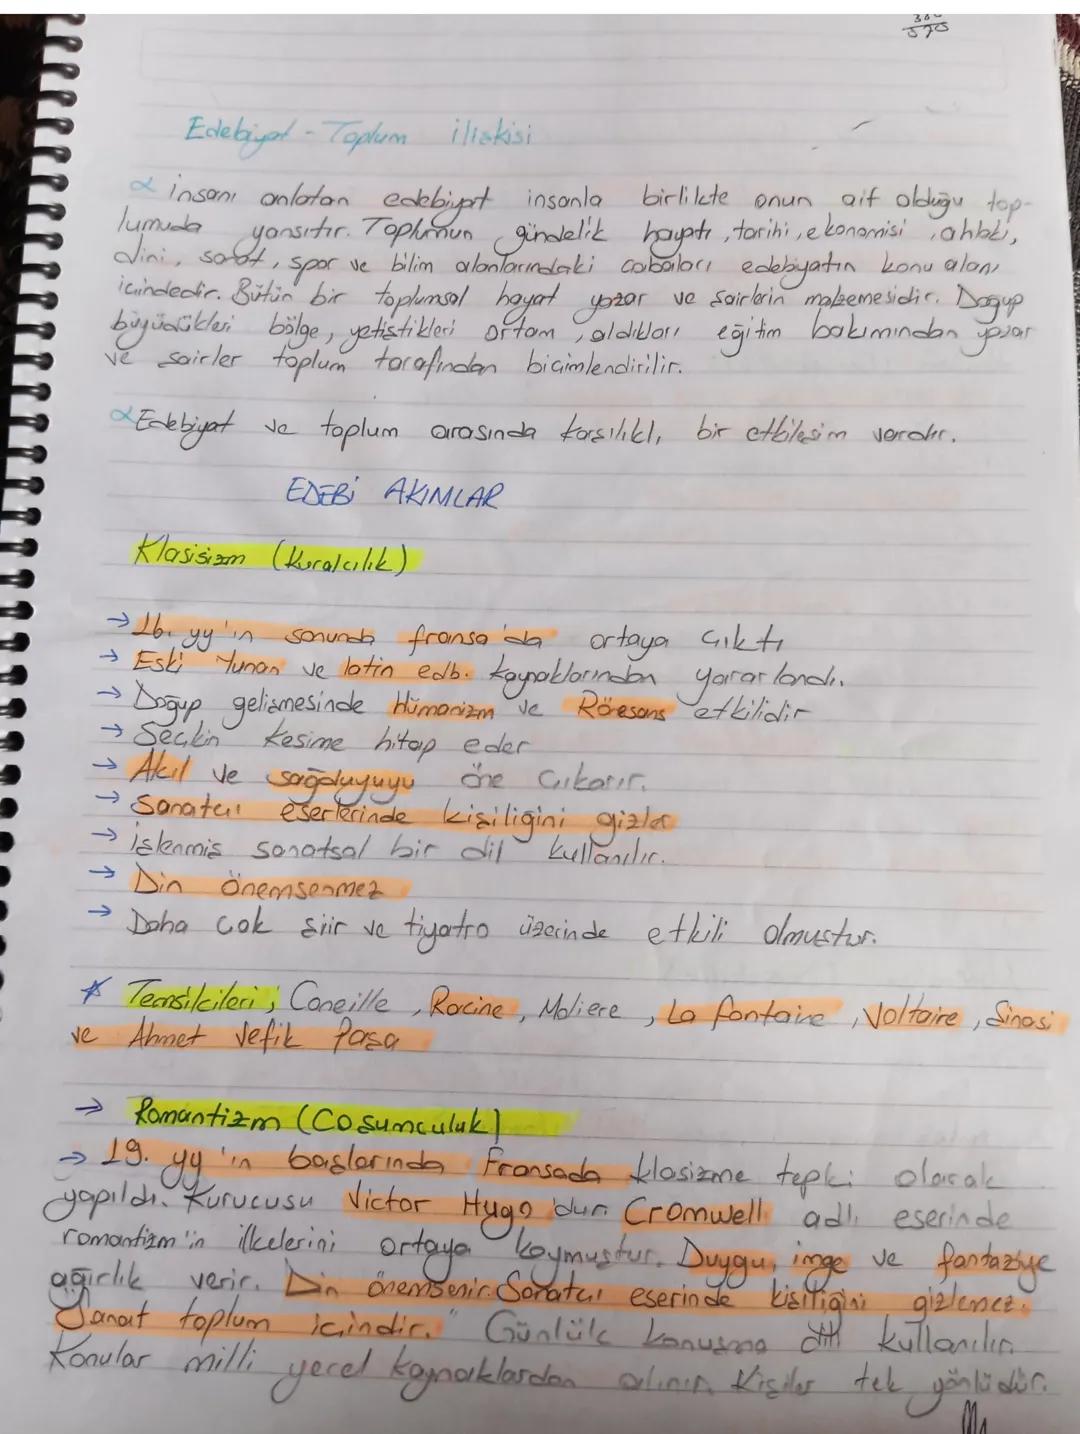 Edebiyat - Toplum ilişkisi
insanı anlatan edebiyat insanla birlikte onun ait olduğu top-
lumuda yansıtır. Toplumun gündelik hayatı, tarihi, ekonomisi, ahlakı,
dini, sanat, spor ve bilim alanlarındaki çabaları edebiyatın konu alanı
içindedir. Bütün bir toplumsal hayat yazar ve şairlerin malzemesidir. Doğup
büyüdükleri bölge, yetiştikleri ortam, aldıkları eğitim bakımından yazar
ve şairler toplum tarafından biçimlendirilir.
Edebiyat ve toplum arasında karşılıklı bir etkileşim vardır.
EDEBİ AKIMLAR
Klasisizm (Kuralcılık)
→ 16. yy'ın sonunda fransa'da ortaya çıktı
→ Eski Yunan ve latin edb. kaynaklarından yararlandı.
→ Doğup gelişmesinde Hümanizm ve Rönesans etkilidir
→ Seçkin kesime hitap eder
→ Akıl ve sağduyuyu öne çıkarır.
→ Sanatçı eserlerinde kişiliğini gizler
→ işlenmiş sanatsal bir dil kullanılır.
→ Din önemsenmez
→ Daha çok şiir ve tiyatro üzerinde etkili olmuştur.
* Temsilcileri; Corneille, Racine, Moliere, La fontaine, Voltaire, Şinasi
ve Ahmet Vefik Paşa
→ Romantizm (Coşumculuk)
→ 19. yy'ın başlarında Fransada klasizme tepki olarak
yapıldı. Kurucusu Victor Hugo'dur. Cromwell adlı eserinde
romantizm'in ilkelerini ortaya koymuştur. Duygu, imge ve fantaziye
ağırlık verir. Din önemsenir. Sanatçı eserinde kişiliğini gizlemez.
"Sanat toplum içindir." Günlük konuşma dili kullanılır.
Konular milli yerel kaynaklardan alınır. Kişiler tek yönlüdür.